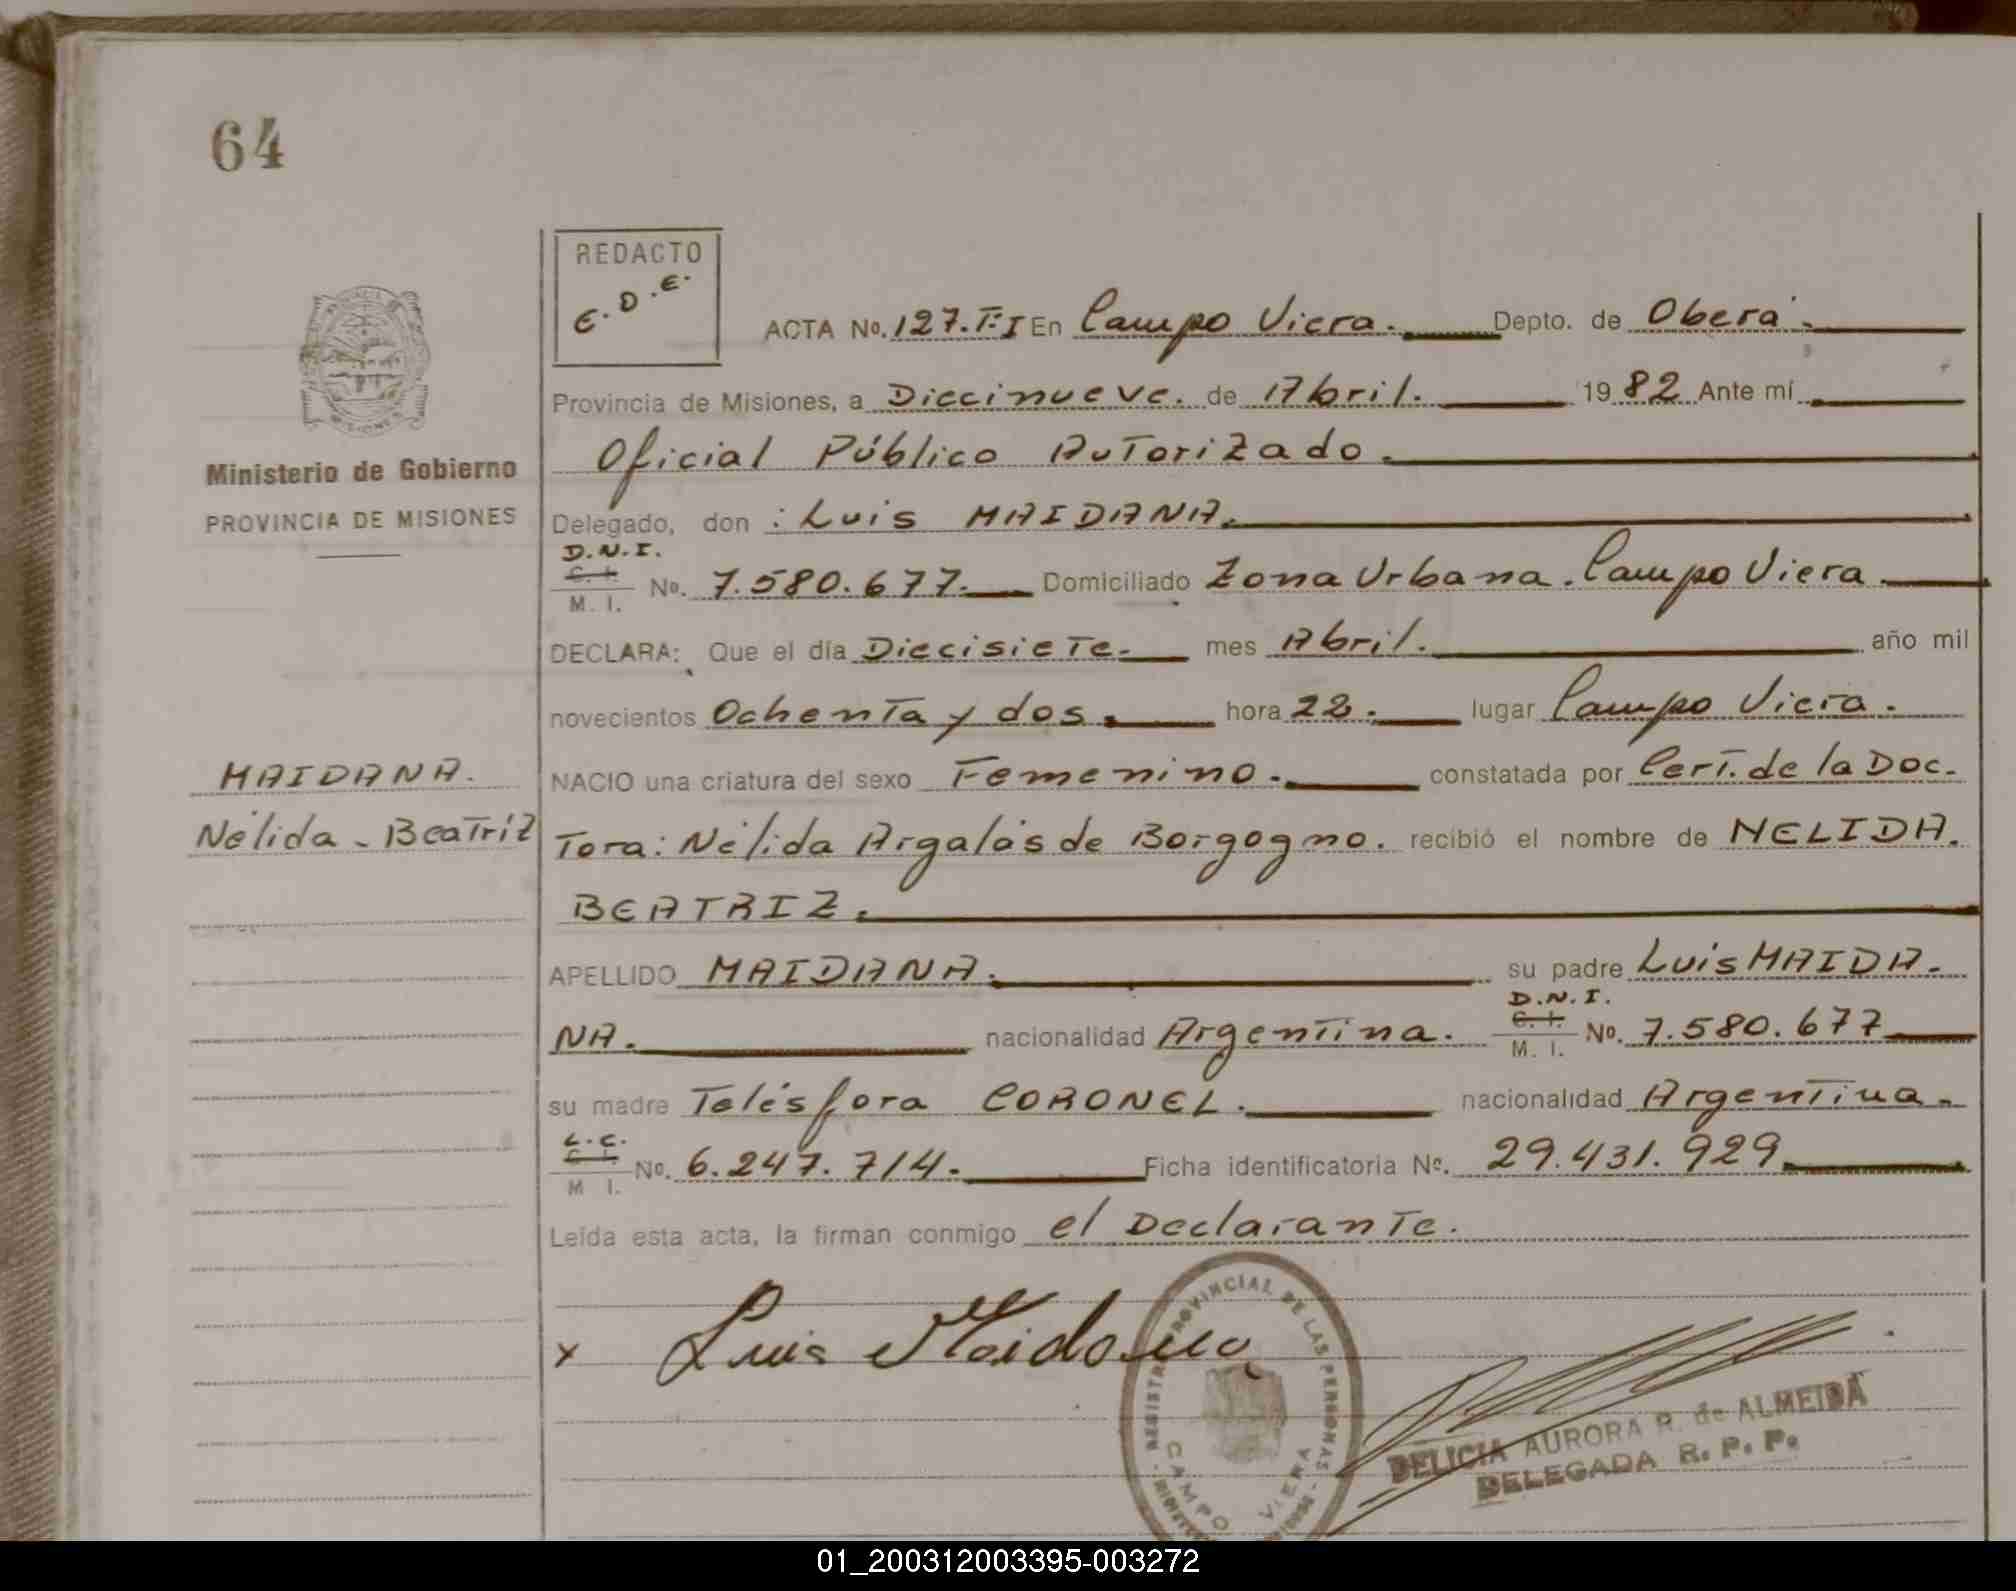 64
REDACTO
E.D.E.
ACTA No. 127.T:I En Campo Viera. Depto. de Oberá.
Provincia de Misiones, a Diecinueve. de Abril. 1982 Ante mí
Oficial Público Autorizado.
Ministerio de Gobierno
PROVINCIA DE MISIONES
Delegado, don : Luis MAIDANA.
D.N.I.
C. I.
M. I. No. 7.580.677. Domiciliado Zona Urbana. Campo Viera.
DECLARA: Que el día Diecisiete. mes Abril. año mil
novecientos Ochenta y dos. hora 22. lugar Campo Viera.
MAIDANA.
NACIO una criatura del sexo Femenino. constatada por Cert. de la Doc.
Nélida - Beatriz
Tora: Nélida Argalás de Borgogno. recibió el nombre de NELIDA.
BEATRIZ.
APELLIDO MAIDANA. su padre Luis MAIDA.
NA. nacionalidad Argentina. D.N.I. C. I. M. I. No. 7.580.677
su madre Telésfora CORONEL. nacionalidad Argentina.
L.C.
C. I.
M I. No. 6.247.714. Ficha identificatoria No. 29.431.929
Leída esta acta, la firman conmigo el Declarante.
x Luis Maidana
REGISTRO PROVINCIAL DE LAS PERSONAS
CAMPO VIERA
DELICIA AURORA R. de ALMEIDA
DELEGADA R. P. P.
01_200312003395-003272